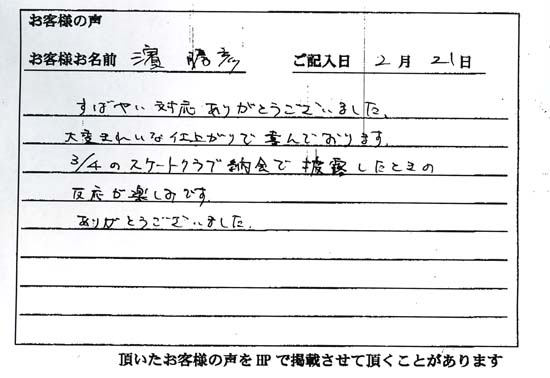 お客様の声
お客様お名前 濱 勝彦 ご記入日 2月 21日
すばやい対応ありがとうございました。
大変きれいな仕上がりで喜んでおります。
3/4のスケートクラブ納会で披露したときの
反応が楽しみです。
ありがとうございました。
頂いたお客様の声をHPで掲載させて頂くことがあります